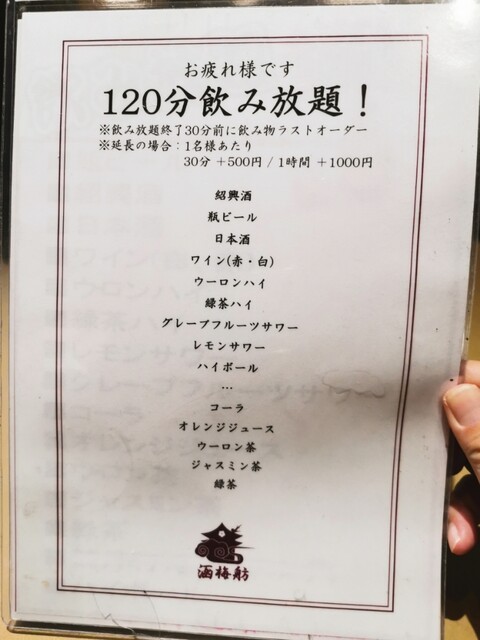 お疲れ様です
120分飲み放題！
※飲み放題終了30分前に飲み物ラストオーダー
※延長の場合：1名様あたり
30分 +500円 / 1時間 +1000円
紹興酒
瓶ビール
日本酒
ワイン(赤・白)
ウーロンハイ
緑茶ハイ
グレープフルーツサワー
レモンサワー
ハイボール
…
コーラ
オレンジジュース
ウーロン茶
ジャスミン茶
緑茶
酒梅舫